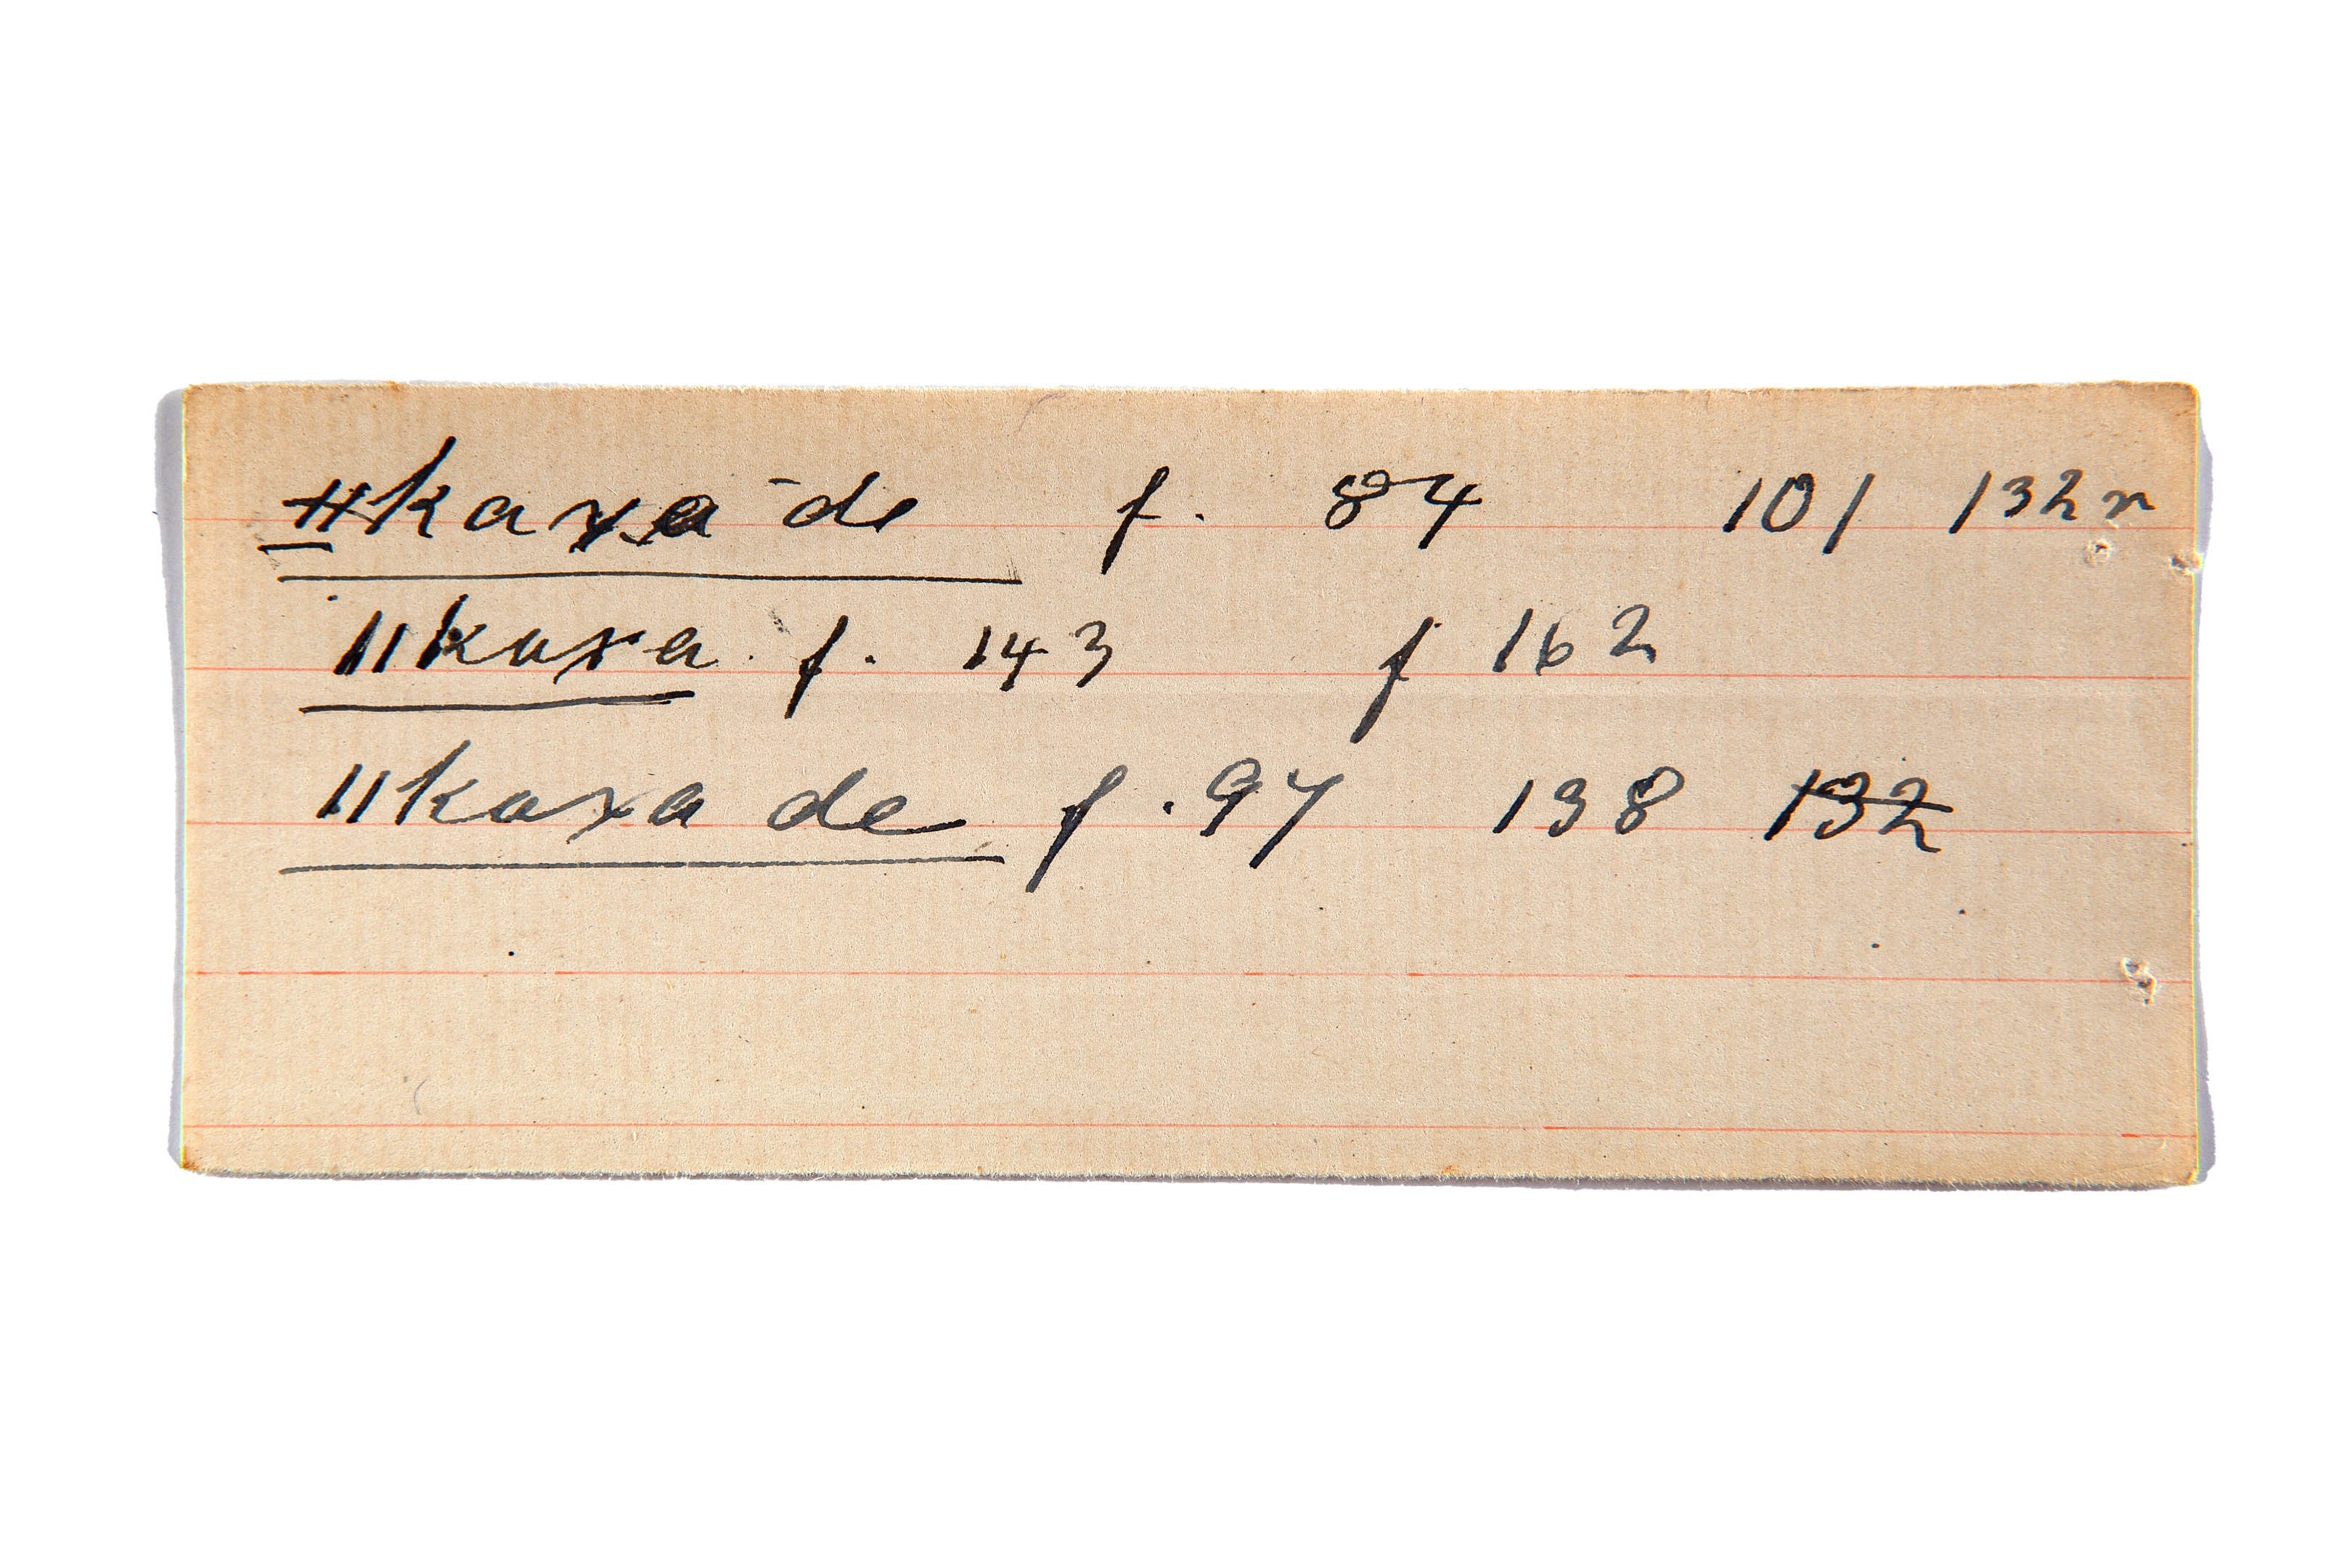 ǂkaxa-de f. 84 101 132n
ǁkaxa. f. 143 f 162
ǁkaxa de f. 97 138 132